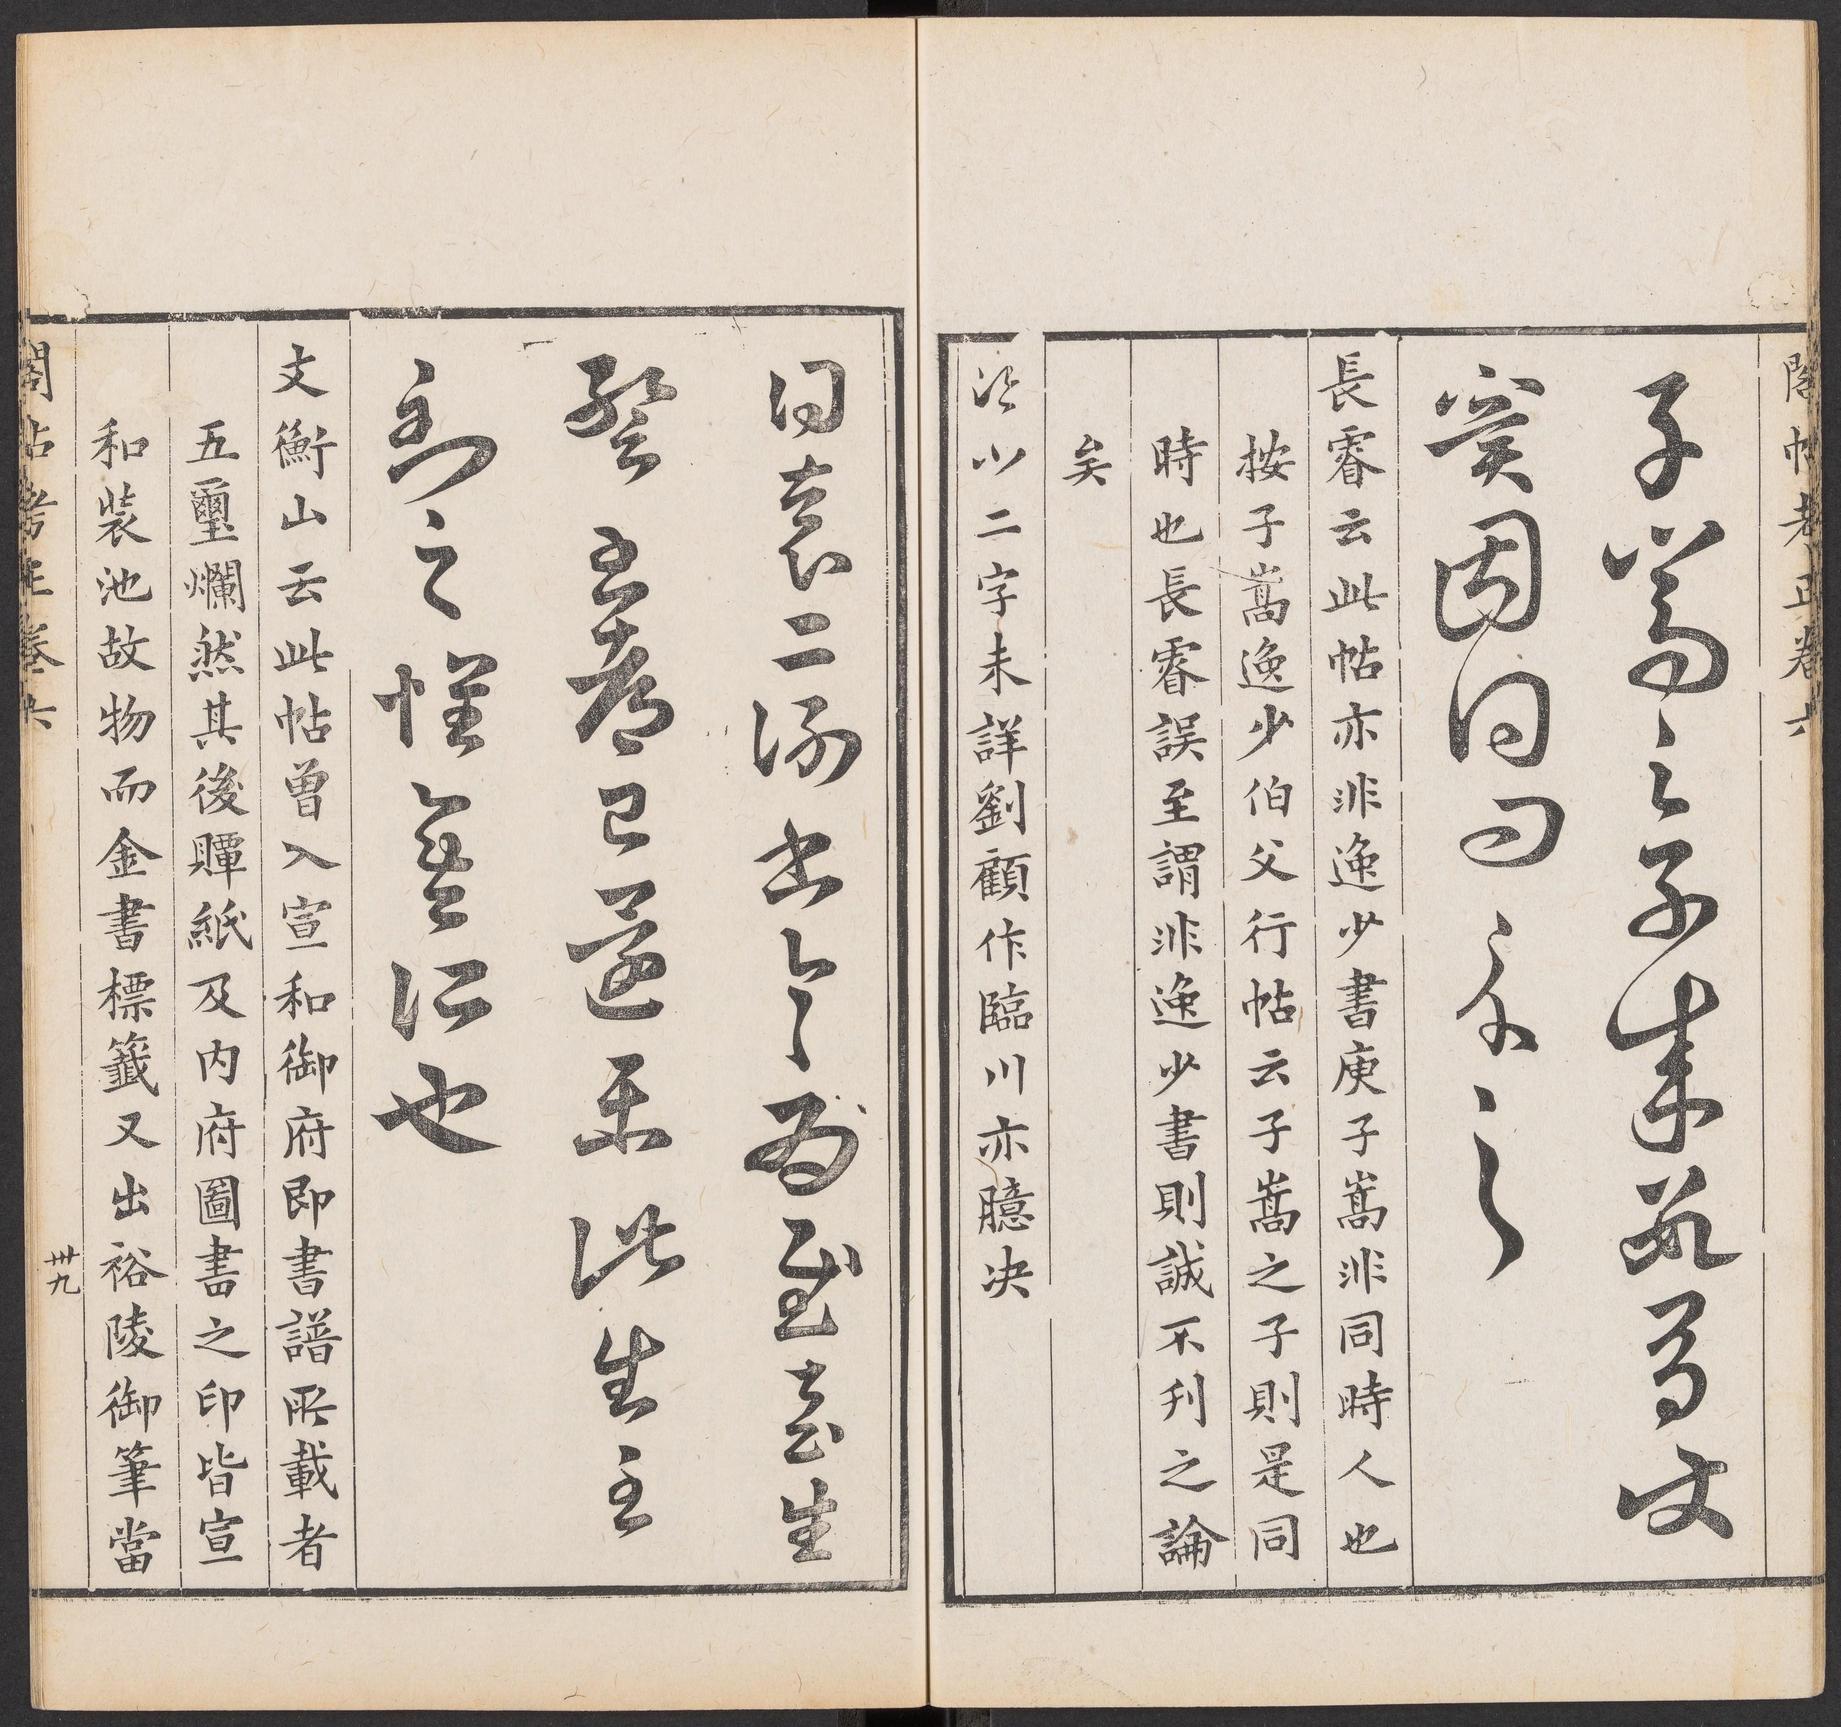 閣帖考正卷六
子嵩之子來數有使
冥因問可示之
長睿云此帖亦非逸少書庾子嵩非同時人也
按子嵩逸少伯父行帖云子嵩之子則是同
時也長睿誤至謂非逸少書則誠不刊之論
矣
二字未詳劉顧作臨川亦臆決
得袁二謝書具為慰袁生
暨至都已還未此生至
到之懷吾所也
文衡山云此帖曾入宣和御府即書譜所載者
五璽爛然其後贉紙及內府圖書之印皆宣
和裝池故物而金書標籤又出裕陵御筆當
閣帖考正卷六
卅九